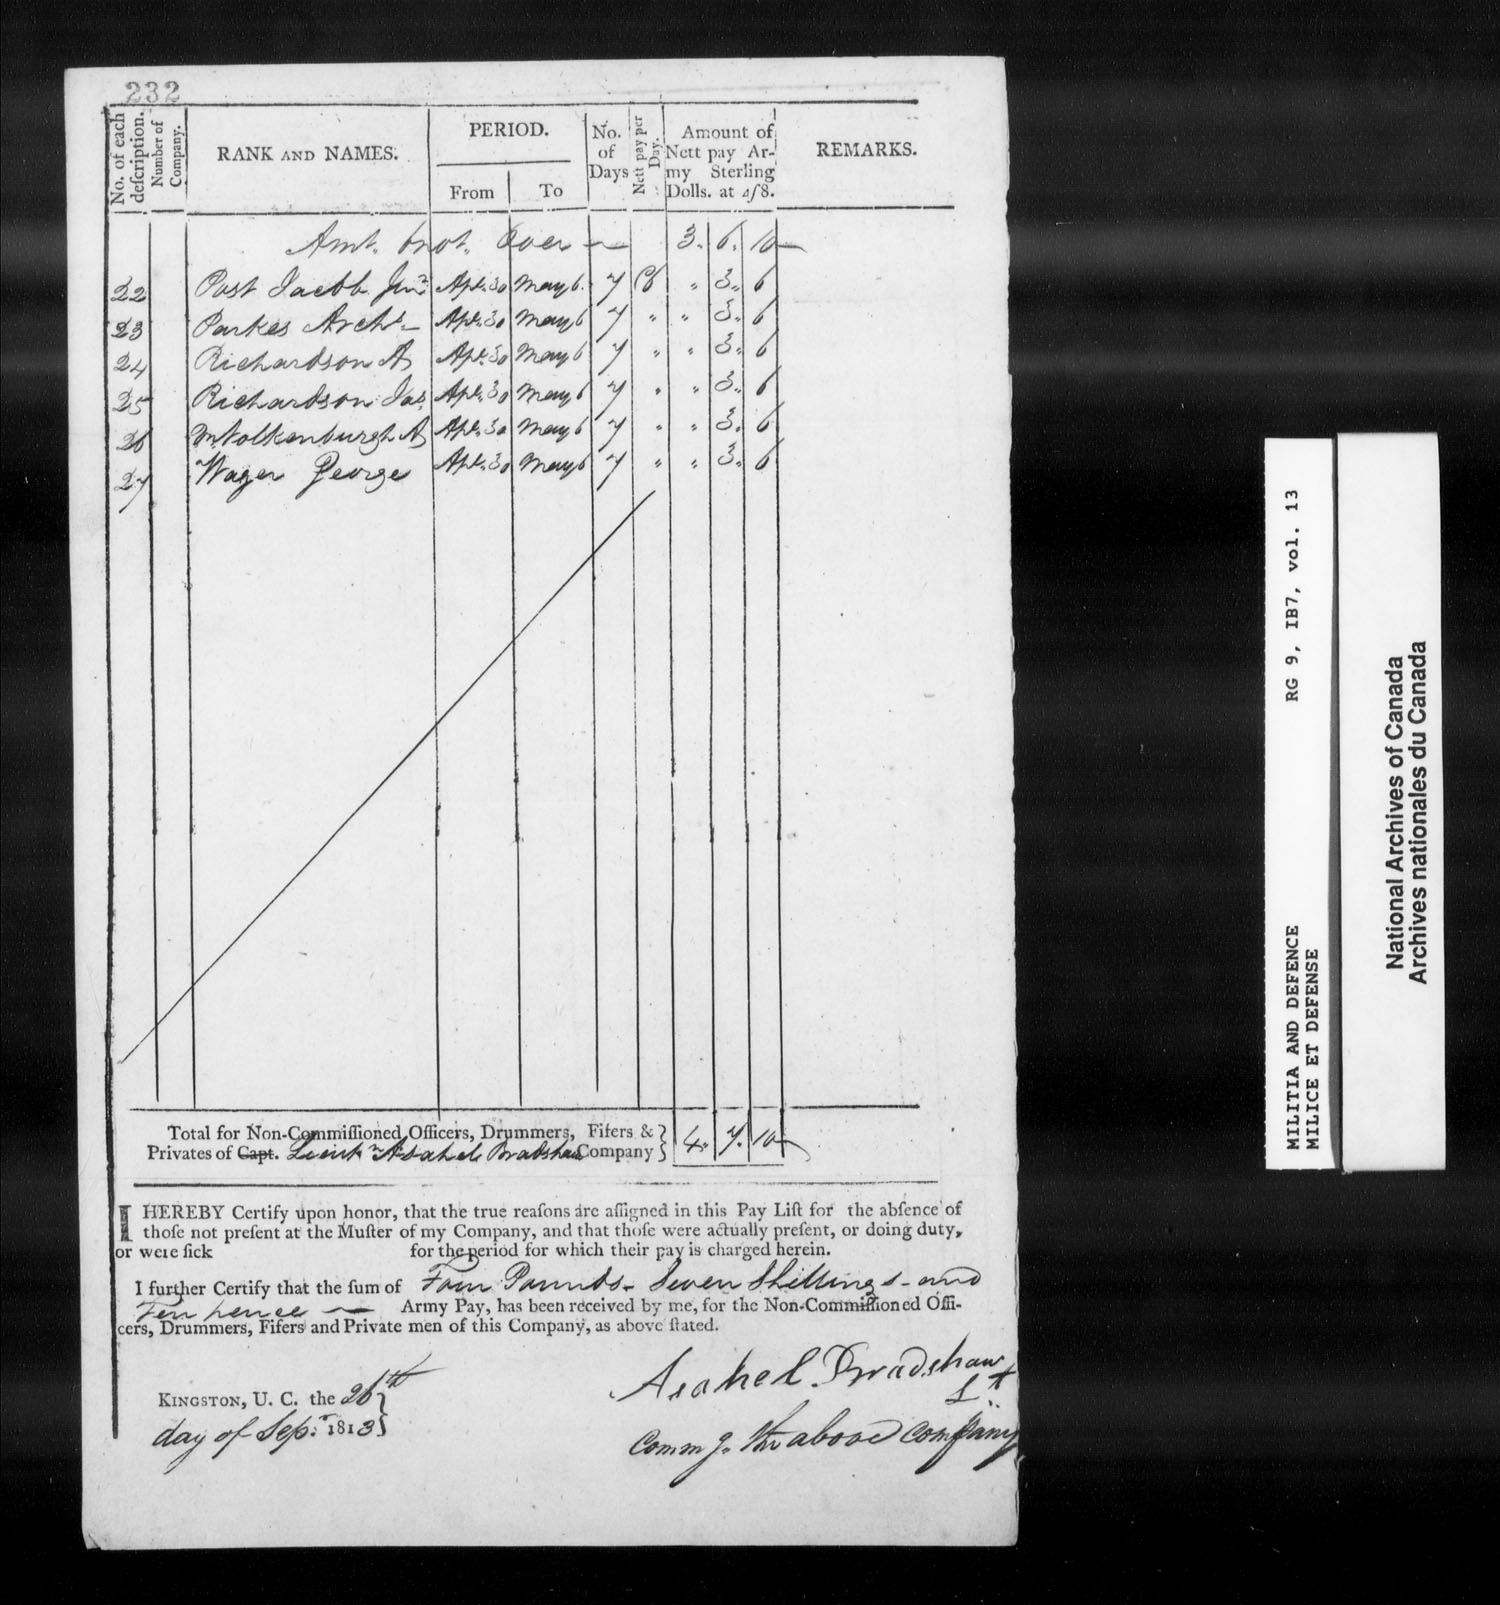 232
No. of each deſcription.
Number of Company.
RANK AND NAMES.
PERIOD.
From To
No. of Days
Nett pay per Day.
Amount of Nett pay Army Sterling Dolls. at 4ſ8.
REMARKS.
Amt. brot. Over 3. 6. 10
22 Post Jacob Junr Apl. 30 May 6. 7 " 3. 6
23 Parkes Archd. Apl. 30 May 6 7 " " 3. 6
24 Richardson A Apl. 30 May 6 7 " " 3. 6
25 Richardson Jas. Apl. 30 May 6 7 " " 3. 6
26 Apl. 30 May 6 7 " " 3. 6
27 Wager George Apl. 30 May 6 7 " " 3. 6
Total for Non-Commiſſioned Officers, Drummers, Fifers &
Privates of Capt. Lieut Asahel Bradshaw Company 4. 7. 10
I HEREBY Certify upon honor, that the true reaſons are aſſigned in this Pay Liſt for the abſence of
thoſe not preſent at the Muſter of my Company, and that thoſe were actually preſent, or doing duty,
or were ſick for the period for which their pay is charged herein.
I further Certify that the ſum of Four Pounds - Seven Shillings - and
Ten pence Army Pay, has been received by me, for the Non-Commiſſioned Offi-
cers, Drummers, Fifers and Private men of this Company, as above ſtated.
KINGSTON, U. C. the 26th
day of Sep. 1813
Asahel Bradshaw
Lt
Commg. the above Company
MILITIA AND DEFENCE RG 9, IB7, vol. 13
MILICE ET DEFENSE
National Archives of Canada
Archives nationales du Canada